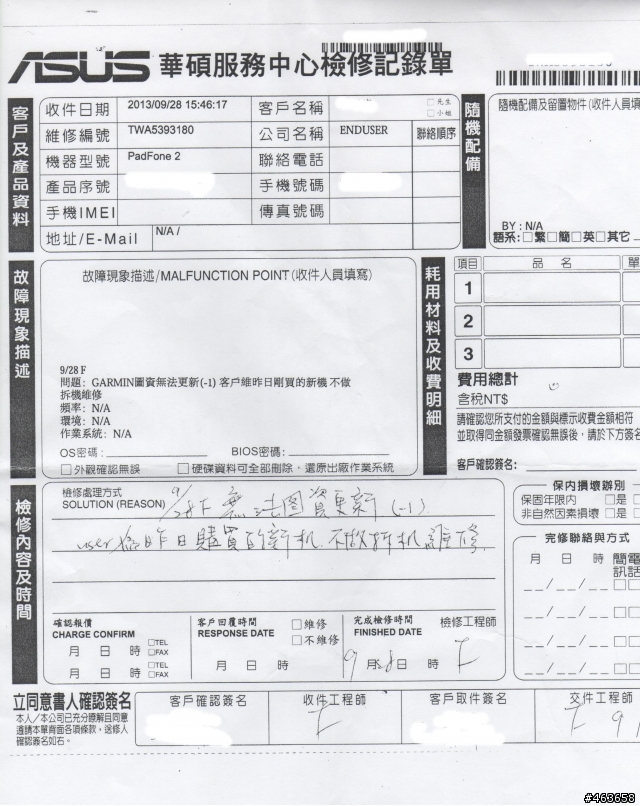 ASUS 華碩服務中心檢修記錄單
客戶及產品資料
收件日期 2013/09/28 15:46:17 客戶名稱 □先生 □小姐
維修編號 TWA5393180 公司名稱 ENDUSER 聯絡順序
機器型號 PadFone 2 聯絡電話
產品序號 手機號碼
手機IMEI 傳真號碼
地址/E-Mail N/A /
隨機配備
隨機配備及留置物件(收件人員填
BY : N/A
語系:□繁□簡□英□其它
故障現象描述
故障現象描述/MALFUNCTION POINT(收件人員填寫)
9/28 F
問題: GARMIN圖資無法更新(-1) 客戶維昨日剛買的新機 不做
拆機維修
頻率: N/A
環境: N/A
作業系統: N/A
OS密碼: BIOS密碼:
□外觀確認無誤 □硬碟資料可全部刪除,還原出廠作業系統
耗用材料及收費明細
項目 品名 單
1
2
3
費用總計
含稅NT$
請確認您所支付的金額與標示收費金額相符
並取得同金額發票確認無誤後,請於下方簽名
客戶確認簽名:
檢修內容及時間
檢修處理方式
SOLUTION (REASON)
9/28 F 無法圖資更新 (-1).
user 為昨日購買的新机 不做拆机維修
保內損壞辦別
保固年限內 □是 □
非自然因素損壞 □是 □
完修聯絡與方式
月 日 時 簡訊 電話
__/__/__ □□
__/__/__ □□
__/__/__ □□
__/__/__ □□
確認報價
CHARGE CONFIRM
月 日 時 □TEL □FAX
月 日 時 □TEL □FAX
客戶回覆時間
RESPONSE DATE
□維修
□不維修
月 日 時
完成檢修時間
FINISHED DATE
9月28日 時
檢修工程師
立同意書人確認簽名
本人/本公司已充分瞭解且同意
遵請本單背面各項條款,送修人
確認簽名如右。
客戶確認簽名 收件工程師 客戶取件簽名 交件工程師
#463658